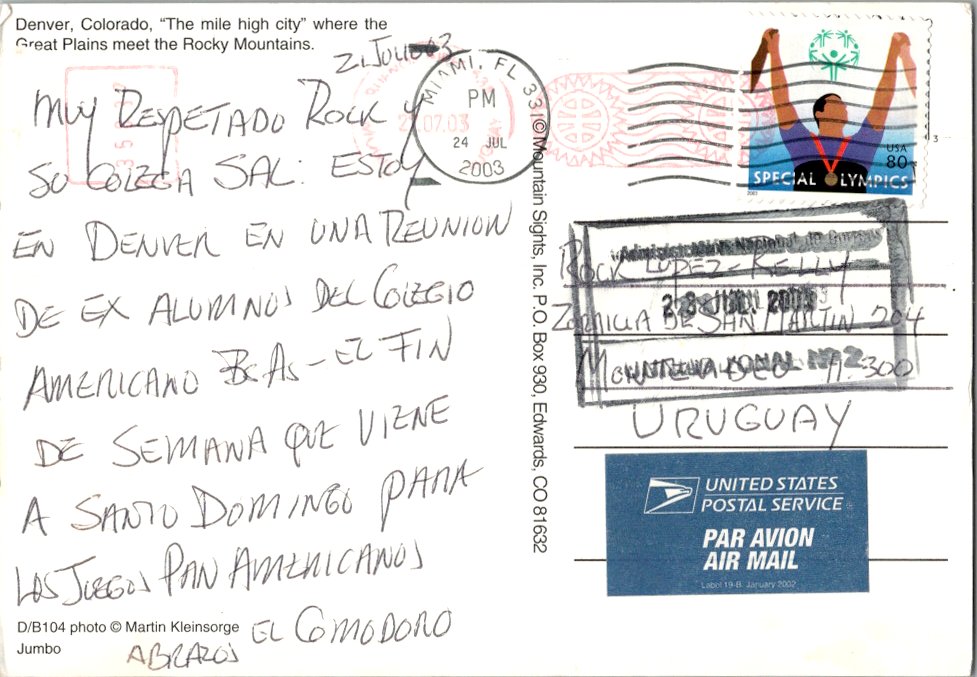 Denver, Colorado, "The mile high city" where the
Great Plains meet the Rocky Mountains.
21 JULIO 03
MUY RESPETADO ROCK Y
SU COLEGA SAL: ESTOY
EN DENVER EN UNA REUNION
DE EX ALUMNOS DEL COLEGIO
AMERICANO BS.AS – EL FIN
DE SEMANA QUE VIENE
A SANTO DOMINGO PARA
LOS JUEGOS PAN AMERICANOS
EL COMODORO
ABRAZOS
D/B104 photo © Martin Kleinsorge
Jumbo
MIAMI, FL 331
PM
24 JUL
2003
07.03
© Mountain Sights, Inc. P.O. Box 930, Edwards, CO 81632
USA
80
SPECIAL OLYMPICS
2003
Administración Nacional de Correos
28 JUL 2003
ROCK LOPEZ-KELLY
ZORRILLA DE SAN MARTIN 204
MONTEVIDEO 11.300
URUGUAY
UNITED STATES
POSTAL SERVICE
PAR AVION
AIR MAIL
Label 19-B, January 2002